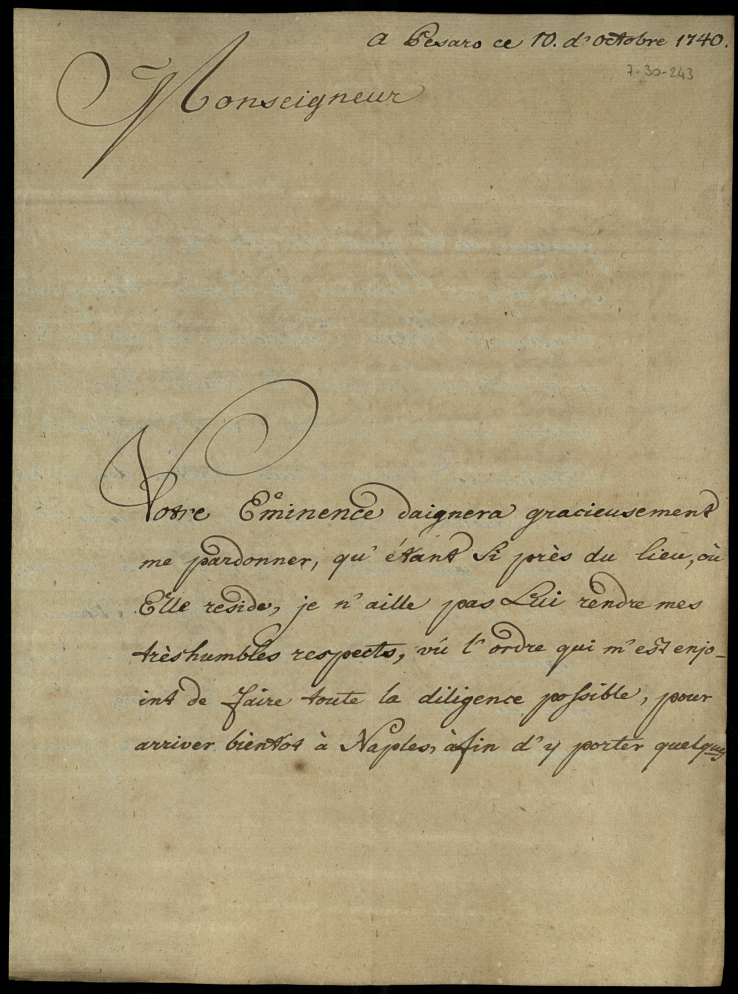 a Pesaro ce 10. d'octobre 1740.
7-30-243
Monseigneur
Votre Eminence daignera gracieusement
me pardonner, qu'étant si près du lieu, où
Elle reside, je n'aille pas Lui rendre mes
trèshumbles respects, vû l'ordre qui m'est enjo-
int de faire toute la diligence possible, pour
arriver bientot à Naples, àfin d'y porter quelques